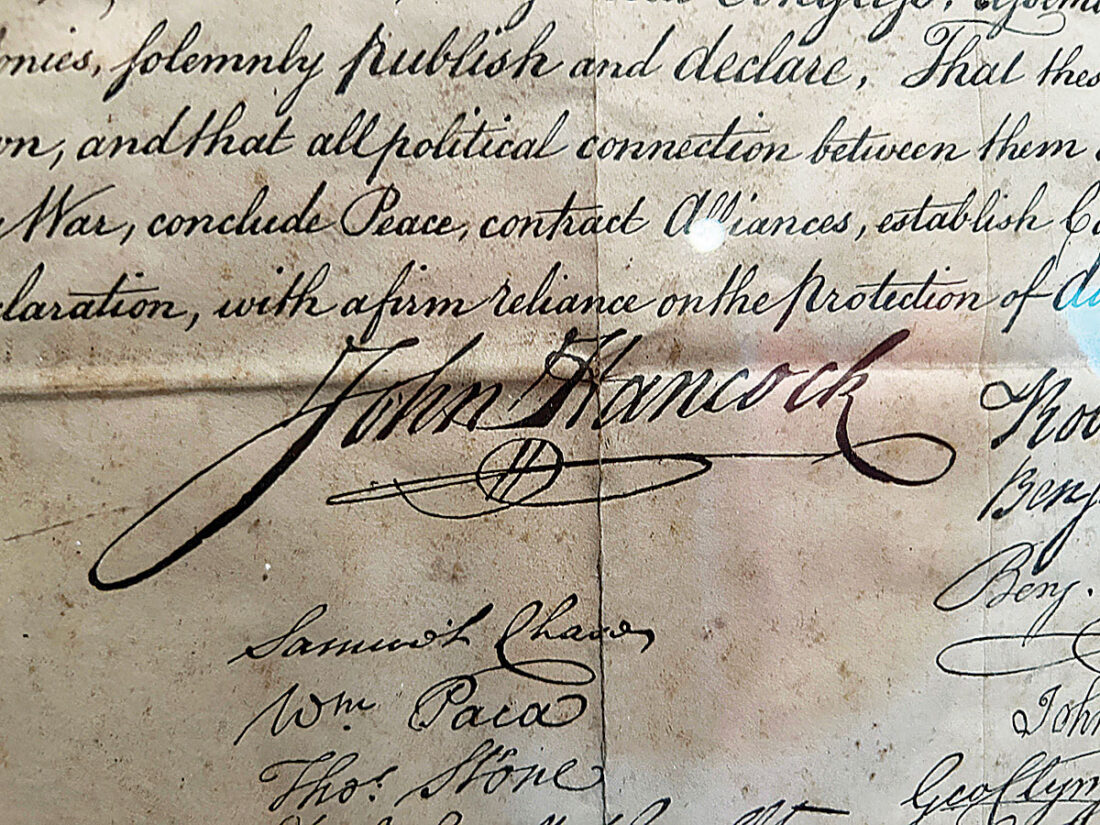 Congress,
onies, solemnly publish and declare, That thes
wn, and that all political connection between them
War, conclude Peace, contract Alliances, establish Co
claration, with a firm reliance on the protection of di
John Hancock
Rob
Benj
Samuel Chase
Benj.
Wm Paca
John
Thos. Stone
Geo Clym